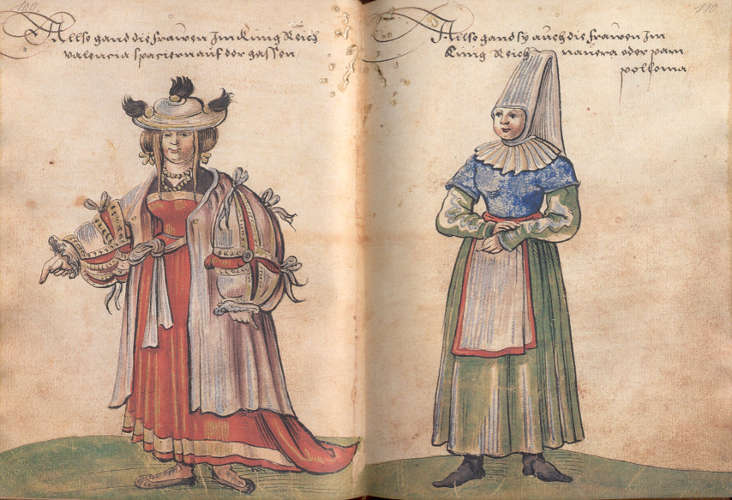 Allso gand die frauen Jm kung Reich
valencia spaciern auf der gassen
110
Allso gand sy auch die frauen Jm
kung Reich navera oder pam
polloma